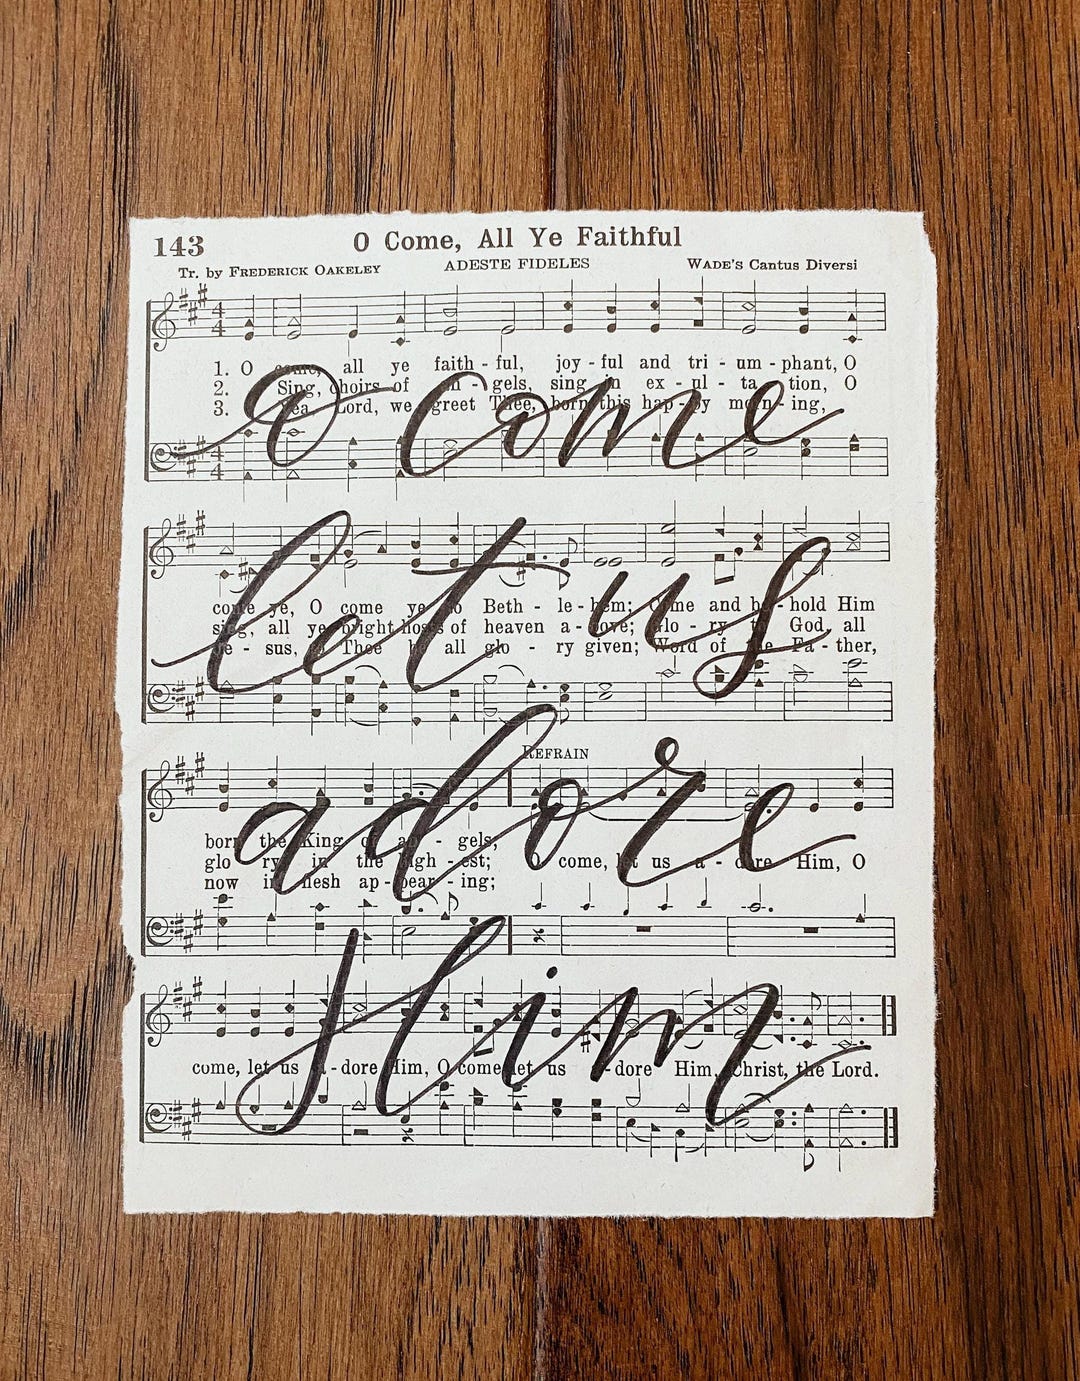 143 O Come, All Ye Faithful
Tr. by Frederick Oakeley ADESTE FIDELES Wade's Cantus Diversi
1. O come, all ye faith - ful, joy - ful and tri - um - phant, O
2. Sing, choirs of an - gels, sing in ex - ul - ta - tion, O
3. Yea Lord, we greet Thee, born this hap - py morn - ing,
O Come
come ye, O come ye to Beth - le - hem; Come and be - hold Him
sing, all ye bright hosts of heaven a - bove; Glo - ry to God, all
Je - sus, to Thee be all glo - ry given; Word of the Fa - ther,
let us
Refrain
born the King of an - gels;
glo ry in the high - est; O come, let us a - dore Him, O
now in flesh ap - pear - ing;
adore
come, let us a - dore Him, O come let us a - dore Him, Christ, the Lord.
Him